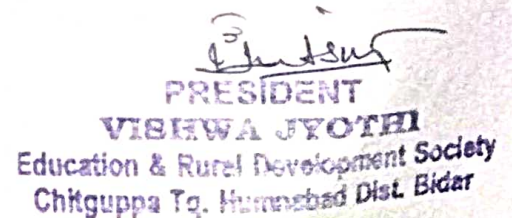 PRESIDENT
VISHWA JYOTHI
Education & Rural Development Society
Chitguppa Tq. Humnabad Dist. Bidar